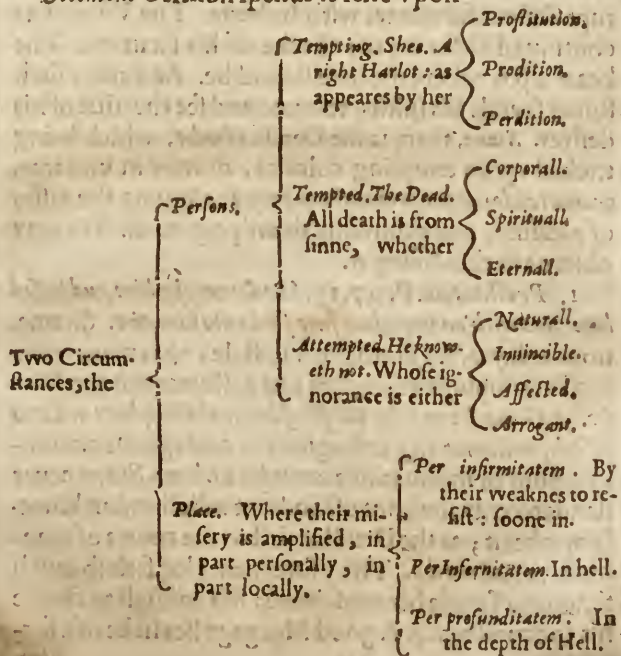 upon
Two Circum-
ſtances, the
Perſons.
Tempting. Shee. A
right Harlot : as
appeares by her
Proſtitution.
Prodition.
Perdition.
Tempted. The Dead.
All death is from
ſinne, whether
Corporall.
Spirituall.
Eternall.
Attempted. He know-
eth not. Whoſe ig-
norance is either
Naturall.
Inuincible.
Affected.
Arrogant.
Place. Where their mi-
ſery is amplified, in
part perſonally, in
part locally.
Per infirmitatem. By
their weaknes to re-
ſiſt : ſoone in.
Per Infernitatem. In hell.
Per profunditatem. In
the depth of Hell.